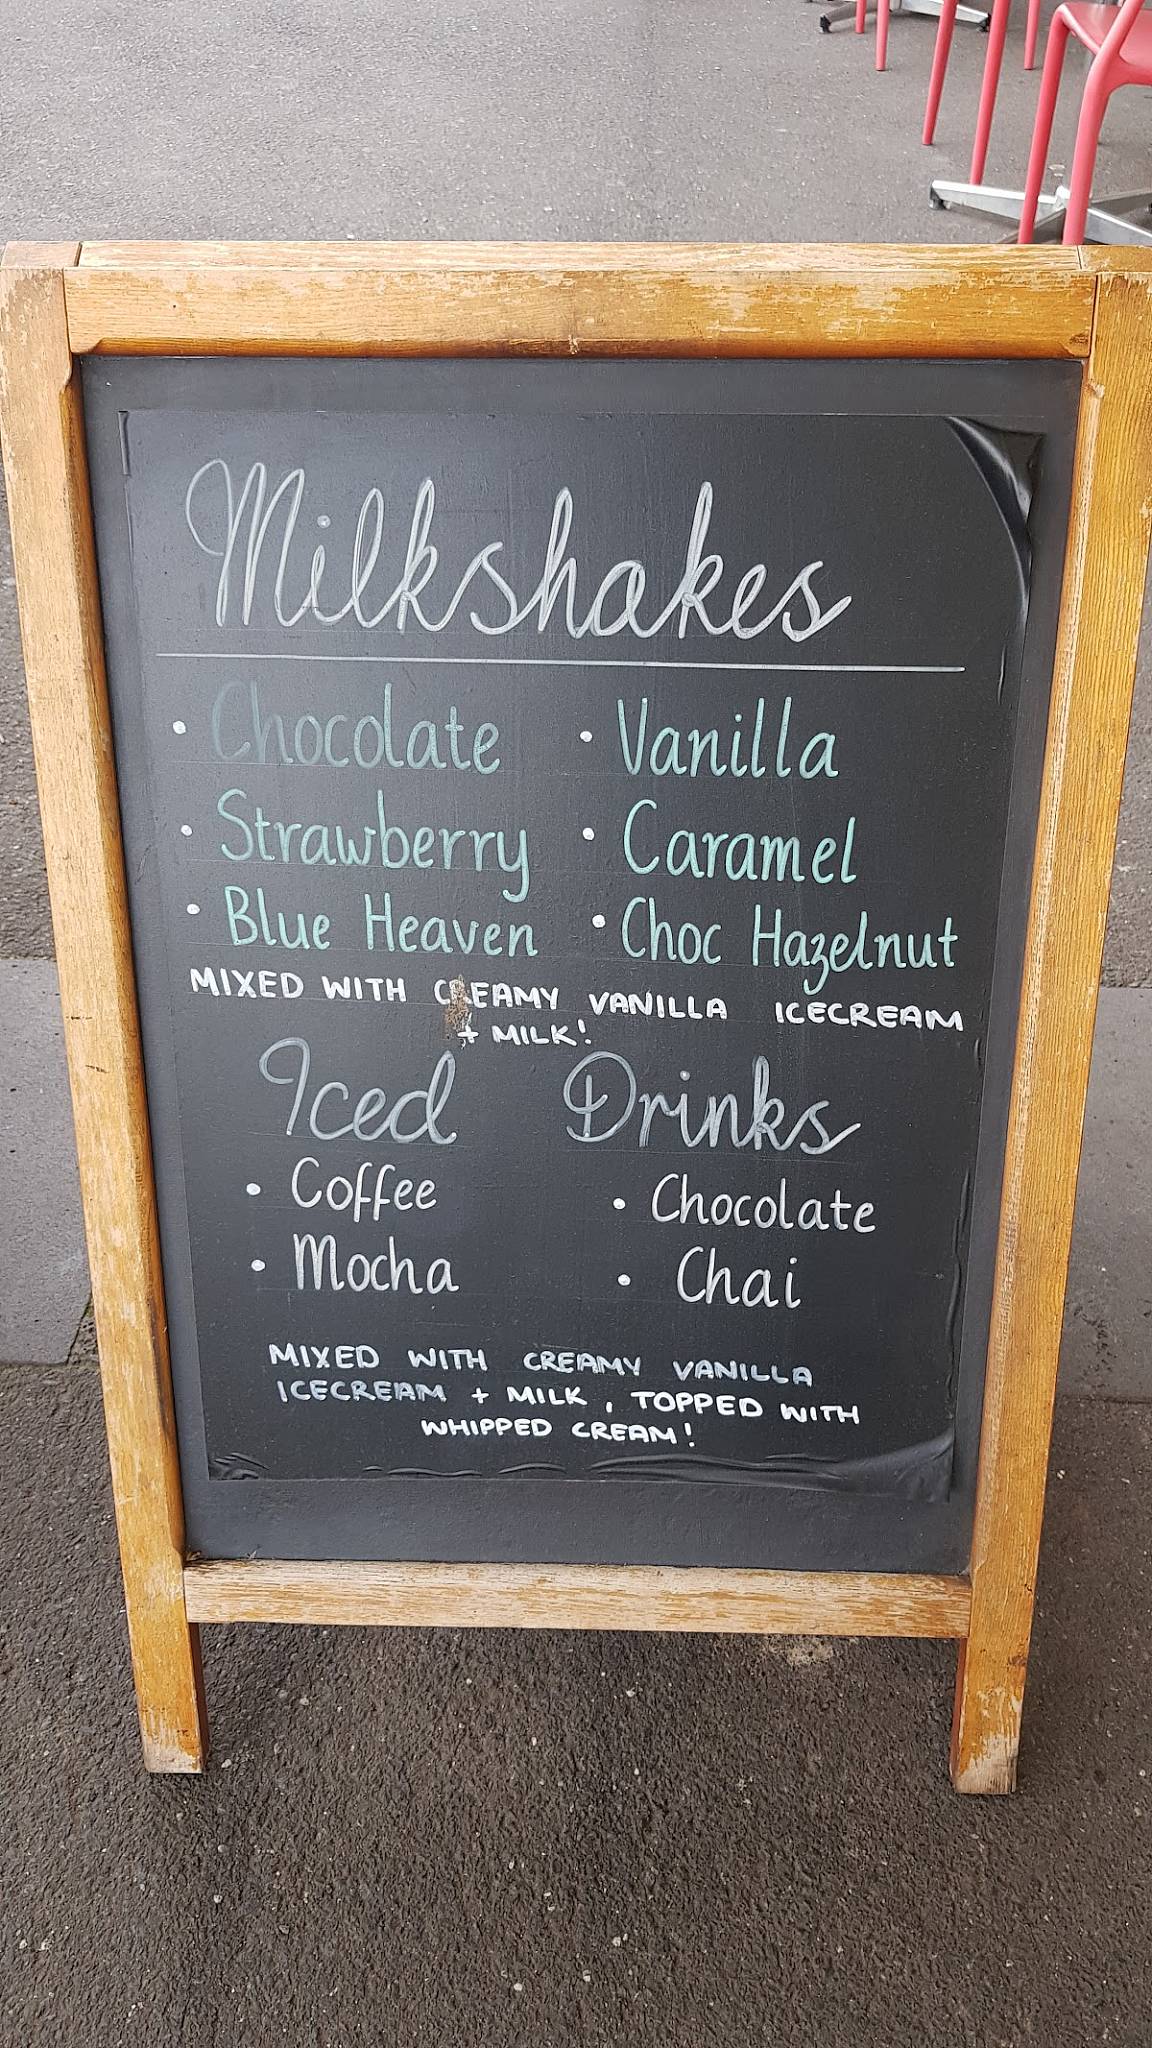 Milkshakes
• Chocolate • Vanilla
• Strawberry • Caramel
• Blue Heaven • Choc Hazelnut
MIXED WITH CREAMY VANILLA ICECREAM
+ MILK!
Iced Drinks
• Coffee • Chocolate
• Mocha • Chai
MIXED WITH CREAMY VANILLA
ICECREAM + MILK, TOPPED WITH
WHIPPED CREAM!